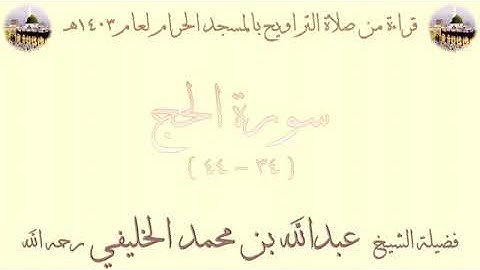 قراءة من صلاة التراويح بالمسجد الحرام لعام ١٤٠٣هـ
سورة الحج
( ٣٤ - ٤٤ )
فضيلة الشيخ عبدالله بن محمد الخليفي رحمه الله